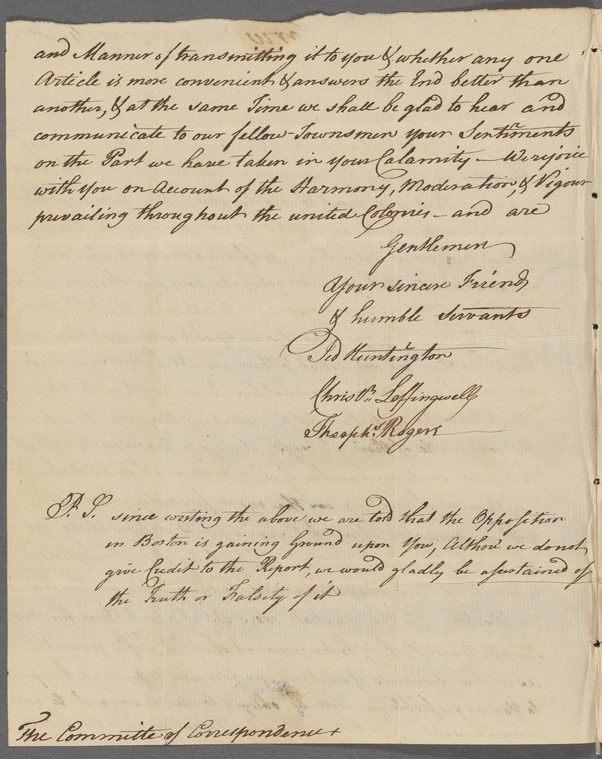 and Manner of transmitting it to you & whether any one
Article is more convenient & answers the End better than
another, & at the same Time we shall be glad to hear and
communicate to our fellow-Townsmen your Sentimts
on the Part we have taken in your Calamity — We rejoice
with you on Account of the Harmony, Moderation, & Vigour
prevailing throughout the united Colonies — and are
Gentlemen
Your sincere Friends
& humble Servants
Jed Huntington
Christr. Leffingwell
Theophs. Rogers
P. S. since writing the above we are told that the Opposition
in Boston is gaining Ground upon You, Altho' we do not
give Credit to the Report, we would gladly be assertained of
the Truth or Falsity of it
The Committe of Correspondence